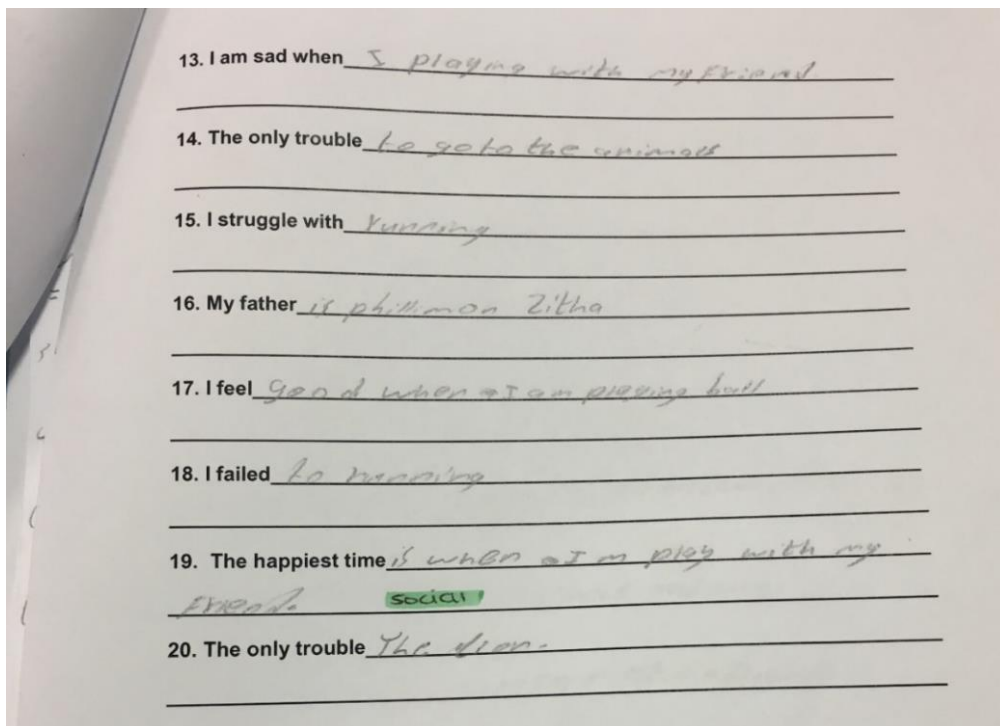 13. I am sad when I playing with my Friend
14. The only trouble to go to the animals
15. I struggle with running
16. My father is phillimon Zitha
17. I feel good when I am playing ball
18. I failed to running
19. The happiest time is when I m play with my
Friend.
social
20. The only trouble The